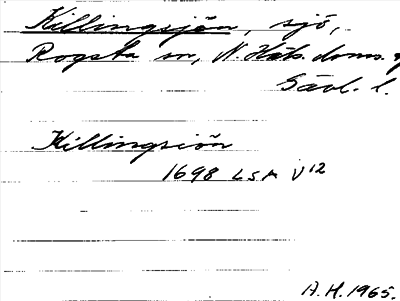 Killingsjön, sjö,
Rogsta sn, N. Häls. doms.
Gävl. l.
Killingsiön
1698 LSA V 12
A.H. 1965.